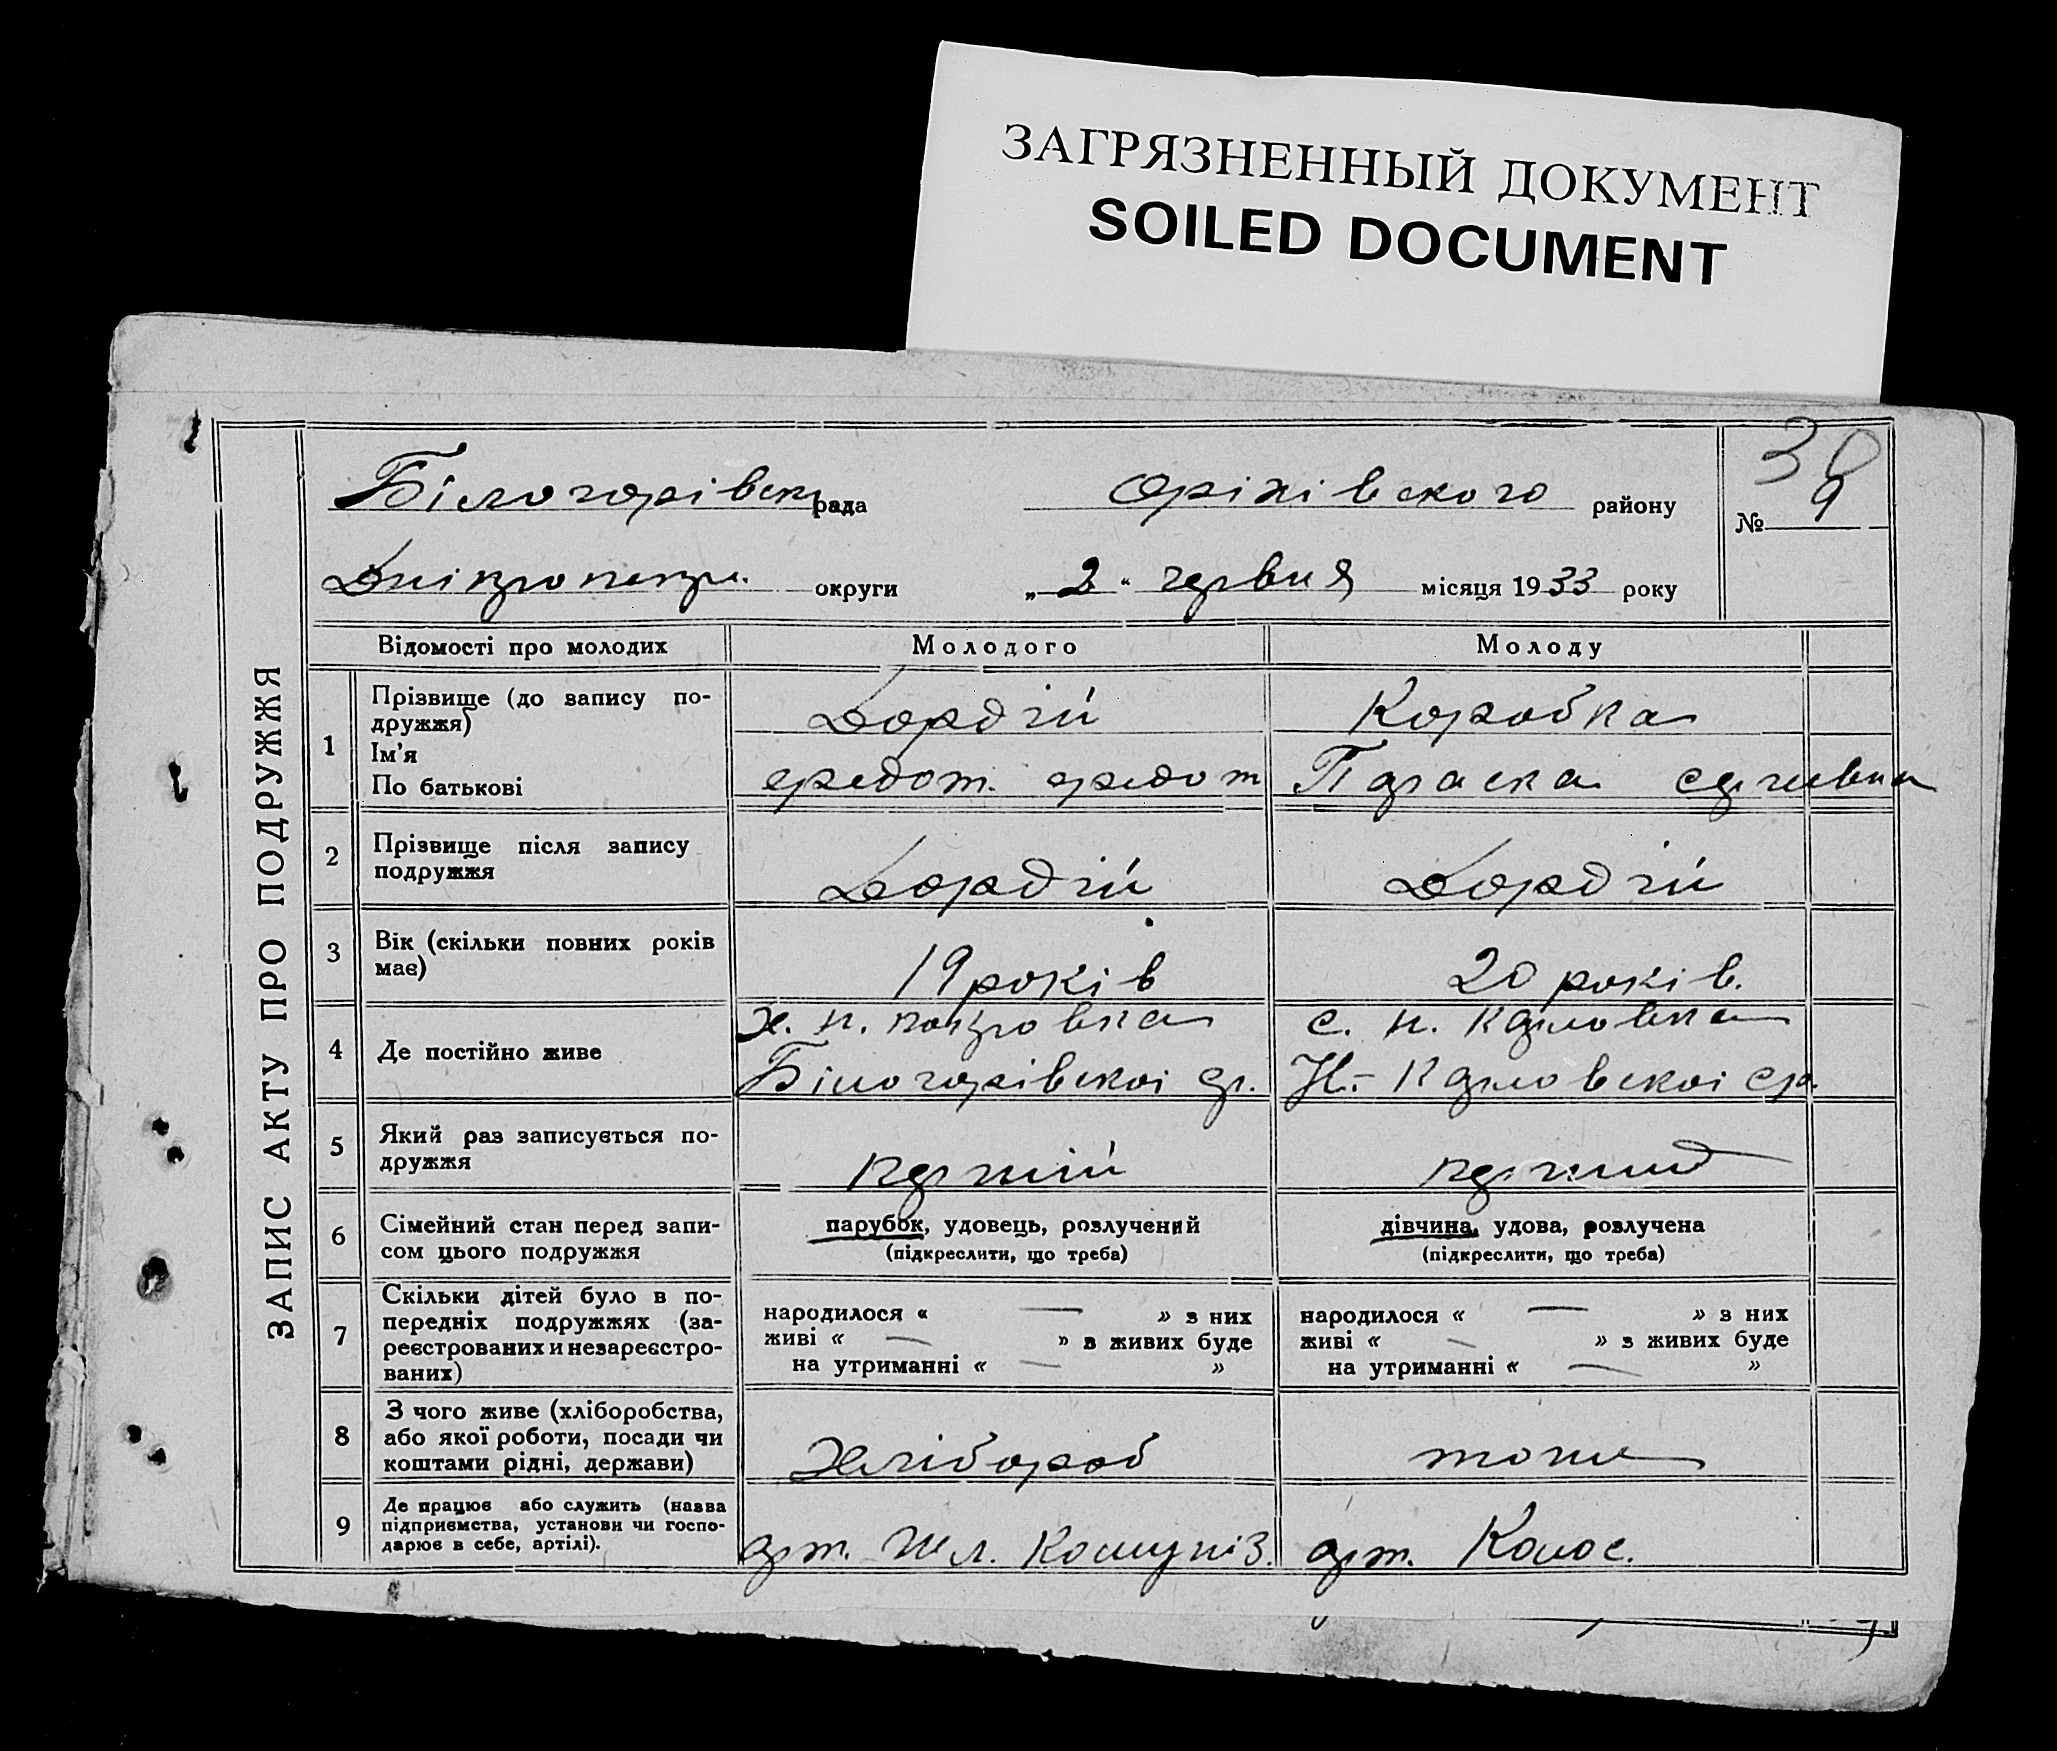 ЗАГРЯЗНЕННЫЙ ДОКУМЕНТ
SOILED DOCUMENT
ЗАПИС АКТУ ПРО ПОДРУЖЖЯ
Білогорівськ рада Оріхівського району
№ 39
Дніпропетр. округи „2“ червня місяця 1933 року
Відомості про молодих Молодого Молоду
1 Прізвище (до запису по-
дружжя)
Ім'я
По батькові
Дордій Коробка
федот. федот Параска
2 Прізвище після запису
подружжя
Дордій Дордій
3 Вік (скільки повних років
має)
19 років 20 років.
4 Де постійно живе
х. н. покровка с. н. Карловка
Білогорівскоі ср. Н.-Карловскоі ср.
5 Який раз записується по-
дружжя
перший перший
6 Сімейний стан перед запи-
сом цього подружжя
парубок, удовець, розлучений
(підкреслити, що треба)
дівчина, удова, розлучена
(підкреслити, що треба)
7 Скільки дітей було в по-
передніх подружжях (за-
реєстрованих и незареєстро-
ваних)
народилося « — » з них
живі « — » з живих буде
на утриманні « — »
народилося « — » з них
живі « — » з живих буде
на утриманні « — »
8 З чого живе (хліборобства,
або якої роботи, посади чи
коштами рідні, держави)
Хлібороб тоже
9 Де працює або служить (назва
підприємства, установи чи госпо-
дарює в себе, артілі).
арт. Шл. Комуніз. арт. Колос.